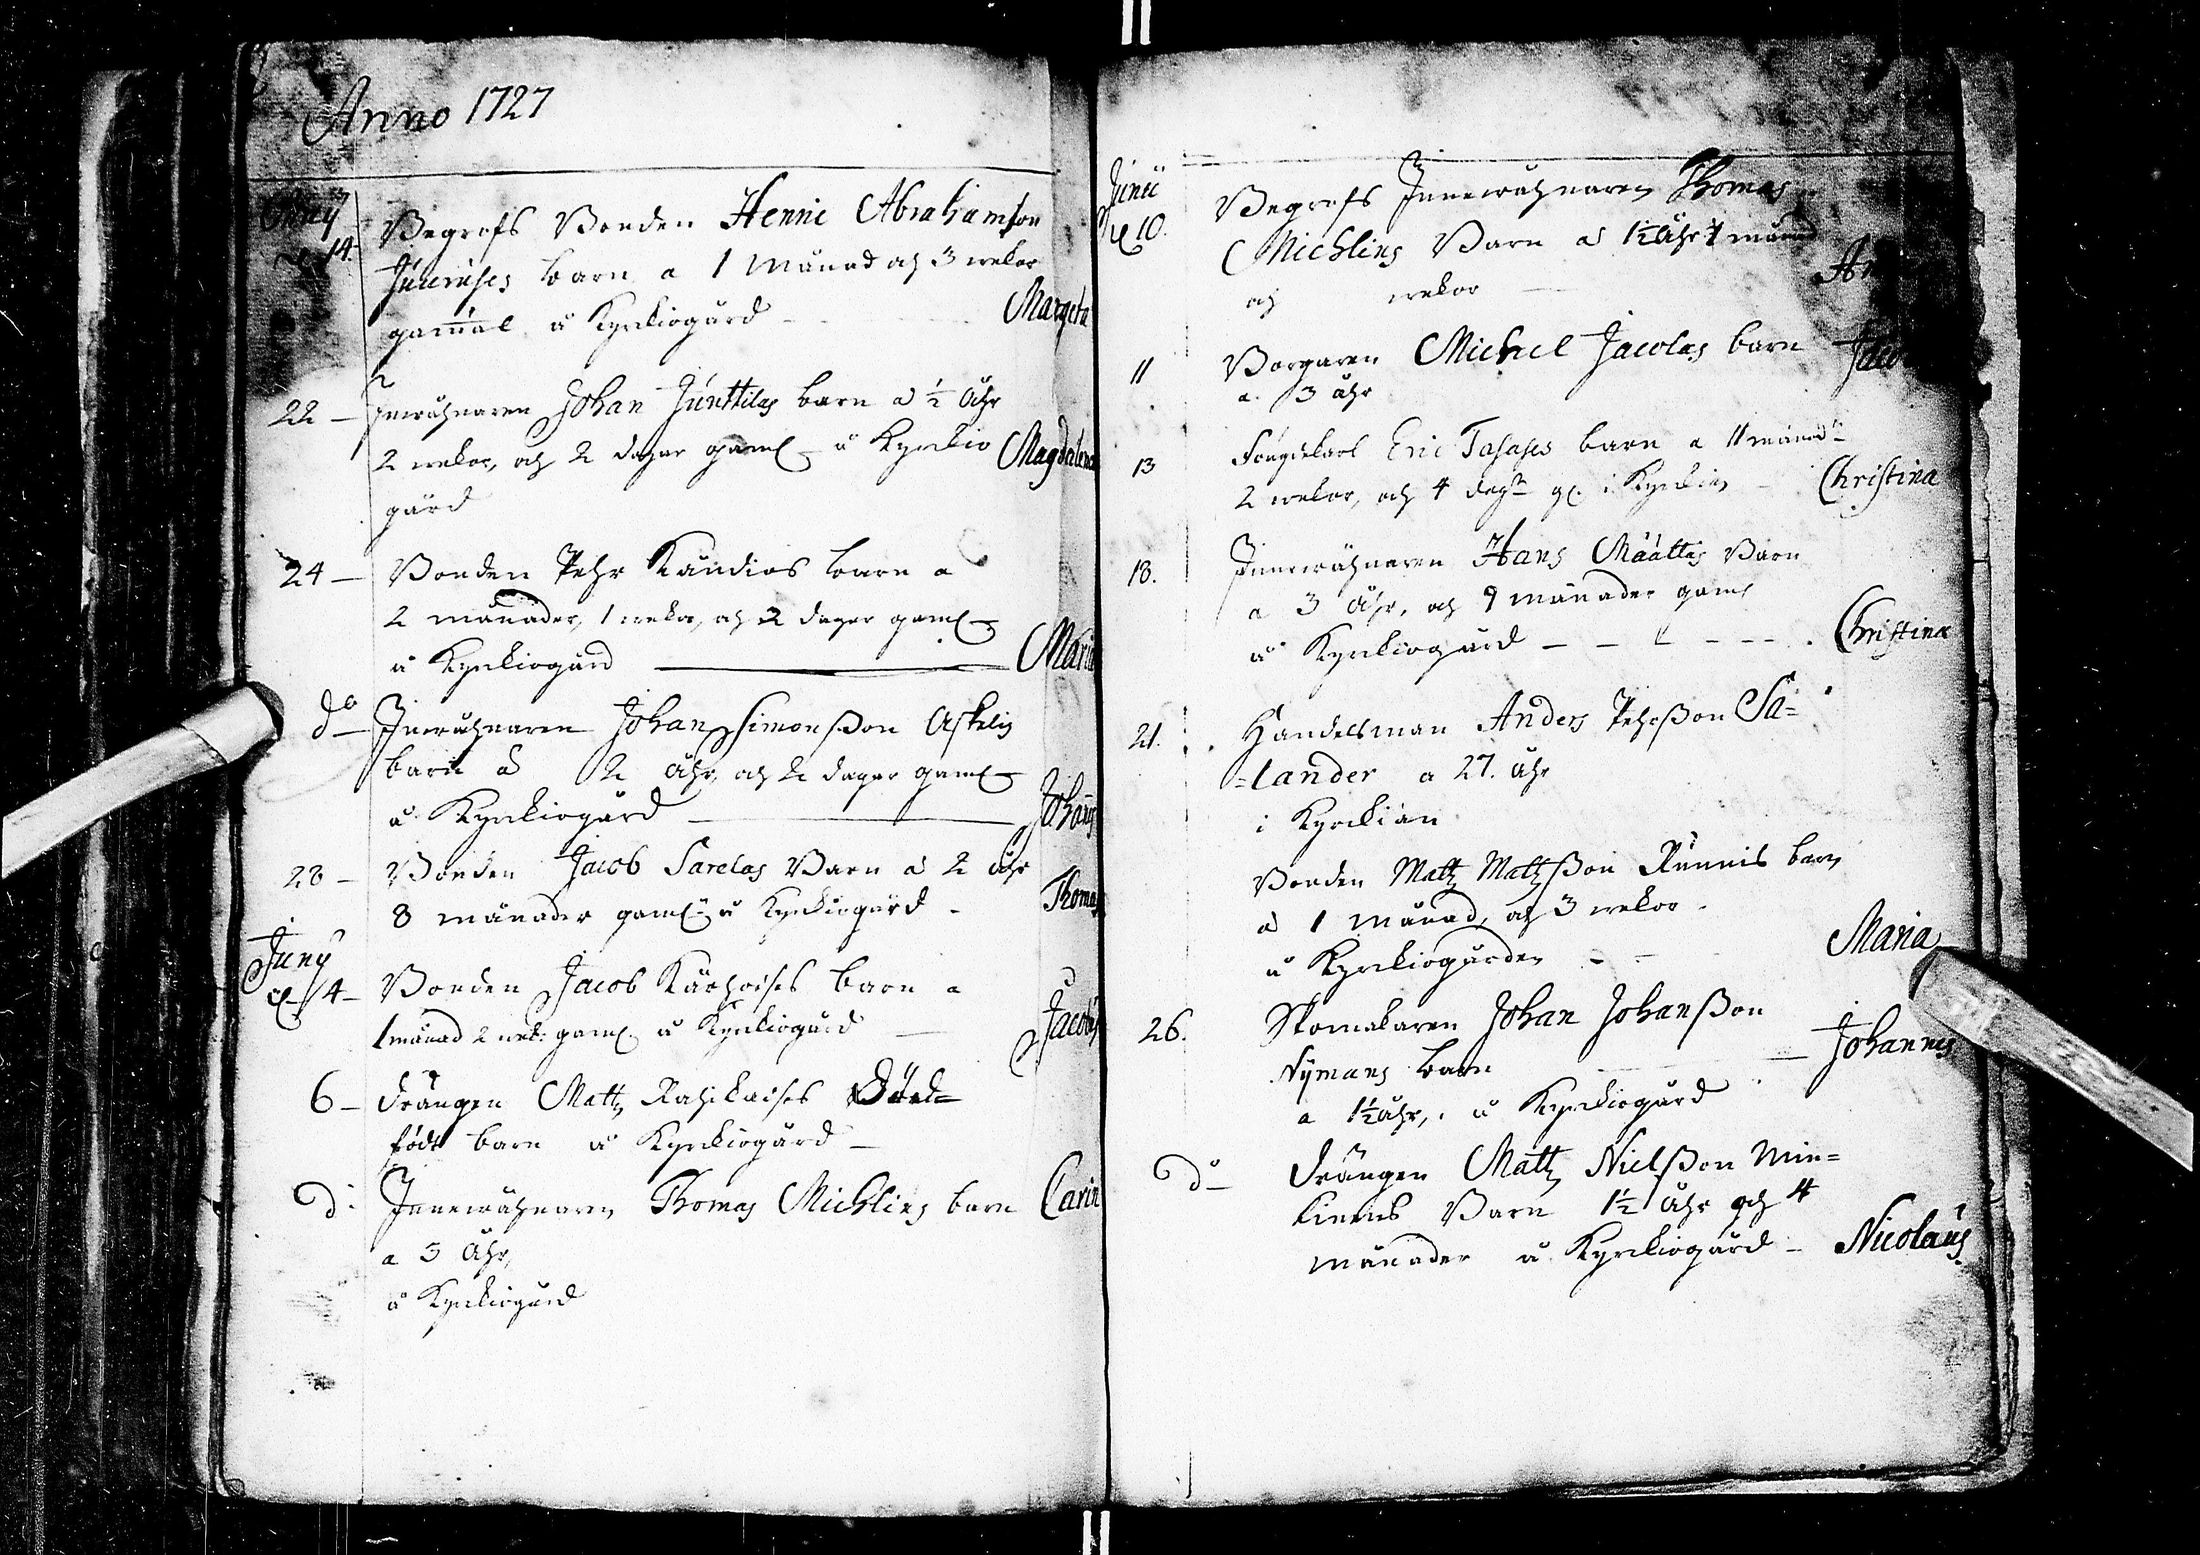 Anno 1727
May
d. 14.
Begrofs Bonden Henric Abrahamson
barn a 1 Månad och 3 wekor
gammal å Kyrkiogård - Margeta
22 - Inwåhnaren Johan Junttilas barn a ½ Åhr
2 wekor, och 2 dagar gaml å Kyrkio Magdalena
gård
24 - Bonden Pehr Kaudios barn a
2 månader, 1 weka, och 2 dagar gaml
å Kyrkiogård Maria
do - Inwåhnaren Johan Simonsson Askelis
barn a 2 Åhr, och 2 dagar gaml
å Kyrkiogård Johannis
28 - Bonden Jacob Sarelas Barn a 2 åhr
8 månader gaml å Kyrkiogård - Thomas
Juny
d. 4 - Bonden Jacob Kärhoises barn a
1 månad 2 wek: gaml. å Kyrkiogård Jacobus
6 - Drängen Matts Rahikaises Död=
födt barn å Kyrkiogård -
do Innewåhnaren Thomas Michlins barn Carin
a 3 Åhr,
å Kyrkiogård
Junii
d. 10. Begrofs Innewåhnaren Thomas
Michlins Barn a 1½ Åhr månad
och wekor
11 Borgaren Michel Jacolas barn
a. 3 åhr
13 Eric Tasases barn a 11 månad
2 wekor, och 4 dag gl. i Kyrkian - Christina
18. Innewåhnaren Hans Määttis Barn
a 3 Åhr, och 9 månader gaml
å Kyrkiogård - - - - - Christina
21. Handelsman Anders Pehrsson Sa=
=lander a 27. åhr
i Kyrkian
Bonden Matts Mattsson Kunnis barn
a 1 Månad, och 3 wekor.
å Kyrkiogården - - Maria
26. Skomakaren Johan Johansson
Nymans barn - Johannes
a 1½ åhr, å Kyrkiogård
do Drängen Matts Nielsson Min=
kinens Barn 1½ Åhr och 4
månader å Kyrkiogård - Nicolaus